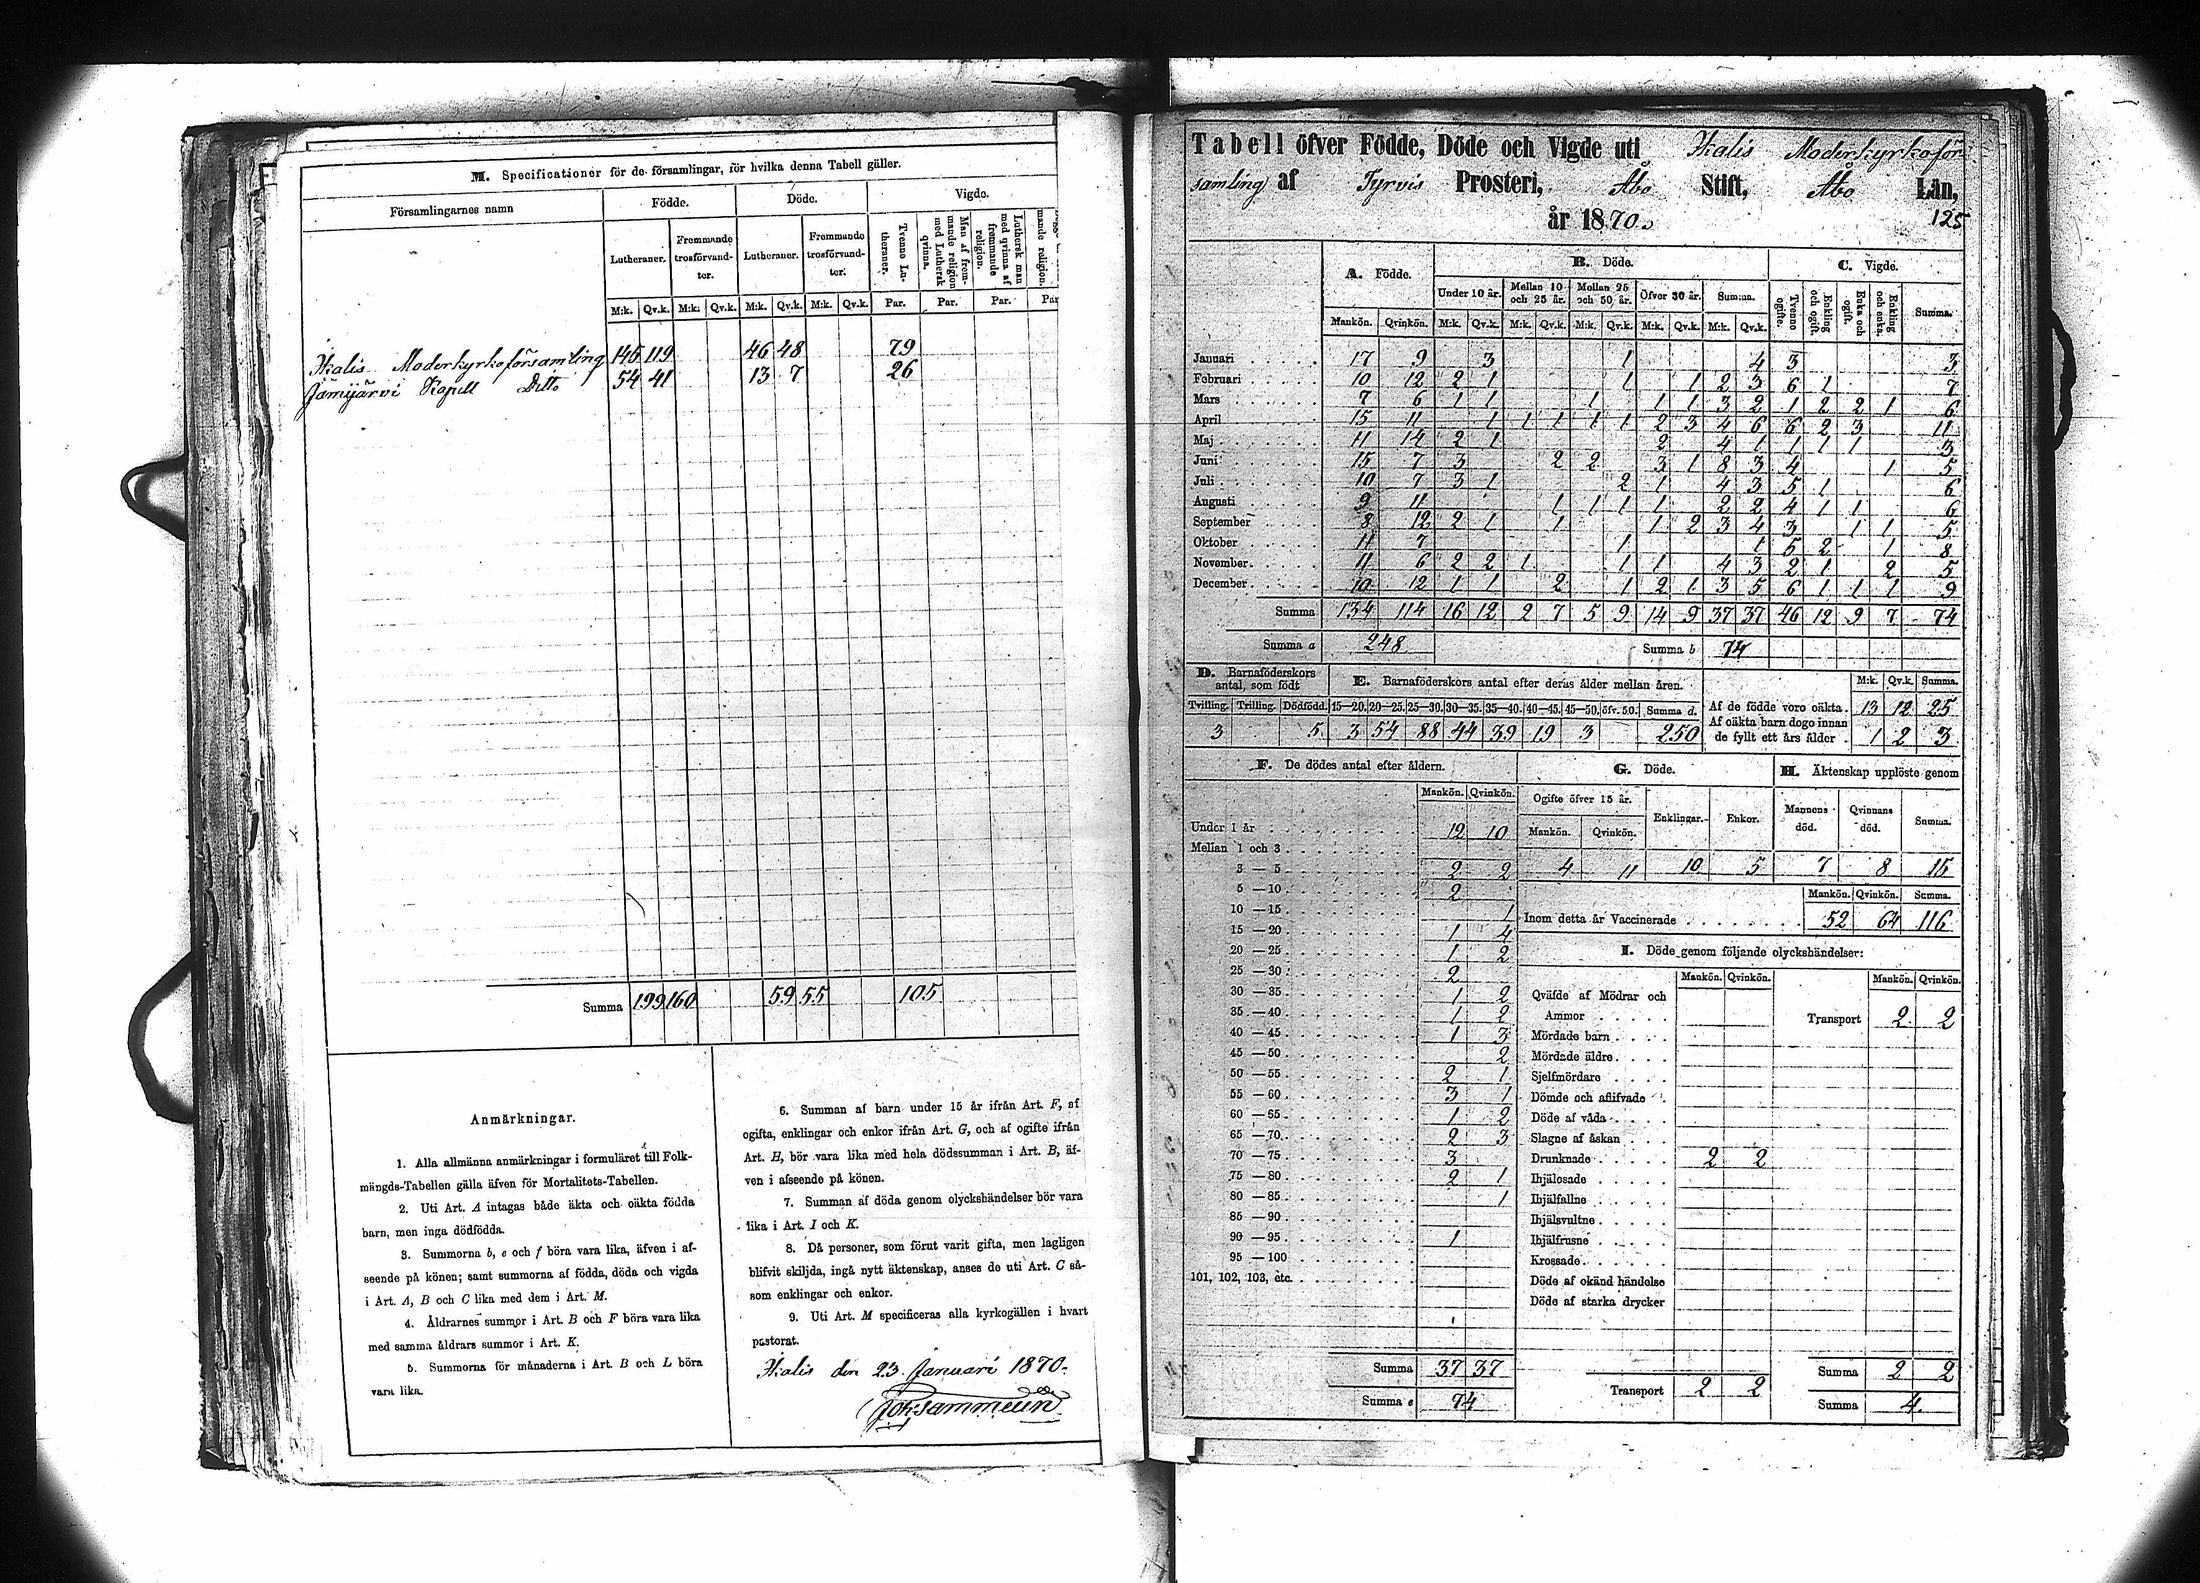 M. Specificationer för de församlingar, för hvilka denna Tabell gäller.
Församlingarnes namn Födde. Döde. Vigde.
Lutheraner. Fremmande trosförvandter. Lutheraner. Fremmande trosförvandter. Tvenne Lutheraner. Man af fremmande religion med Luthersk qvinna. Luthersk man med qvinna af fremmande religion. mande religion.
M:k. Qv.k. M:k. Qv.k. M:k. Qv.k. M:k. Qv.k. Par. Par. Par. Par
Ikalis Moderkyrkoförsamling 145 119 46 48 79
Jämijärvi Kapell Ditto 54 41 13 7 26
Summa 199 160 59 55 105
Anmärkningar.
1. Alla allmänna anmärkningar i formuläret till Folk-
mängds-Tabellen gälla äfven för Mortalitets-Tabellen.
2. Uti Art. A intagas både äkta och oäkta födda
barn, men inga dödfödda.
3. Summorna b, e och f böra vara lika, äfven i af-
seende på könen; samt summorna af födda, döda och vigda
i Art. A, B och C lika med dem i Art. M.
4. Åldrarnes summor i Art. B och F böra vara lika
med samma åldrars summor i Art. K.
5. Summorna för månaderna i Art. B och L böra
vara lika.
6. Summan af barn under 15 år ifrån Art. F, af
ogifta, enklingar och enkor ifrån Art. G, och af ogifte ifrån
Art. H, bör vara lika med hela dödssumman i Art. B, äf-
ven i afseende på könen.
7. Summan af döda genom olyckshändelser bör vara
lika i Art. I och K.
8. Då personer, som förut varit gifta, men lagligen
blifvit skiljda, ingå nytt äktenskap, anses de uti Art. C så-
som enklingar och enkor.
9. Uti Art. M specificeras alla kyrkogällen i hvart
pastorat.
Ikalis den 23 Januari 1870.
Tabell öfver Födde, Döde och Vigde uti Ikalis Moderkyrkoför-
samling af Tyrvis Prosteri, Åbo Stift, Åbo Län,
år 1870.
125
A. Födde. B. Döde. C. Vigde.
Under 10 år. Mellan 10 och 25 år. Mellan 25 och 50 år. Öfver 50 år. Summa. Tvenne ogifte. Enkling och ogift. Enka och ogift. Enkling och enka. Summa.
Mankön. Qvinkön. M:k. Qv.k. M:k. Qv.k. M:k. Qv.k. M:k. Qv.k. M:k. Qv.k.
Januari 17 9 3 1 4 3 3
Februari 10 12 2 1 1 1 2 3 6 1 7
Mars 7 6 1 1 1 1 1 3 2 1 2 2 1 6
April 15 11 1 1 1 1 1 2 3 4 6 6 2 3 11
Maj 11 14 2 1 2 4 1 1 1 1 3
Juni 15 7 3 2 2 3 1 8 3 4 1 5
Juli 10 7 3 1 2 1 4 3 5 1 6
Augusti 9 11 1 1 1 1 2 2 4 1 1 6
September 8 12 2 1 1 1 2 3 4 3 1 1 5
Oktober 11 7 1 1 5 2 1 8
November 11 6 2 2 1 1 1 4 3 2 1 2 5
December 10 12 1 1 2 1 2 1 3 5 6 1 1 1 9
Summa 134 114 16 12 2 7 5 9 14 9 37 37 46 12 9 7 74
Summa a 248 Summa b 74
D. Barnaföderskors antal, som födt
Tvilling. Trilling. Dödfödd.
3 5
E. Barnaföderskors antal efter deras ålder mellan åren.
15—20. 20—25. 25—30. 30—35. 35—40. 40—45. 45—50. öfv. 50. Summa d.
3 54 88 44 39 19 3 250
M:k. Qv.k. Summa.
Af de födde voro oäkta. 13 12 25
Af oäkta barn dogo innan
de fyllt ett års ålder 1 2 3
F. De dödes antal efter åldern.
Mankön. Qvinkön.
Under 1 år 12 10
Mellan 1 och 3
3 — 5 2 2
5 — 10 2
10 — 15 1
15 — 20 1 4
20 — 25 1 2
25 — 30 2
30 — 35 1 2
35 — 40 1 2
40 — 45 1 3
45 — 50 2
50 — 55 2 1
55 — 60 3 1
60 — 65 1 2
65 — 70 2 3
70 — 75 3
75 — 80 2 1
80 — 85 1
85 — 90
90 — 95 1
95 — 100
101, 102, 103, etc.
Summa 37 37
Summa e 74
G. Döde.
Ogifte öfver 15 år. Enklingar. Enkor.
Mankön. Qvinkön.
4 11 10 5
H. Äktenskap upplöste genom
Mannens död. Qvinnans död. Summa.
7 8 15
Mankön. Qvinkön. Summa.
Inom detta år Vaccinerade 52 64 116
I. Döde genom följande olyckshändelser:
Mankön. Qvinkön. Mankön. Qvinkön.
Qväfde af Mödrar och
Ammor
Transport 2 2
Mördade barn
Mördade äldre
Sjelfmördare
Dömde och aflifvade
Döde af våda
Slagne af åskan
Drunknade 2 2
Ihjälosade
Ihjälfallne
Ihjälsvultne
Ihjälfrusne
Krossade
Döde af okänd händelse
Döde af starka drycker
Transport 2 2
Summa 2 2
Summa 4